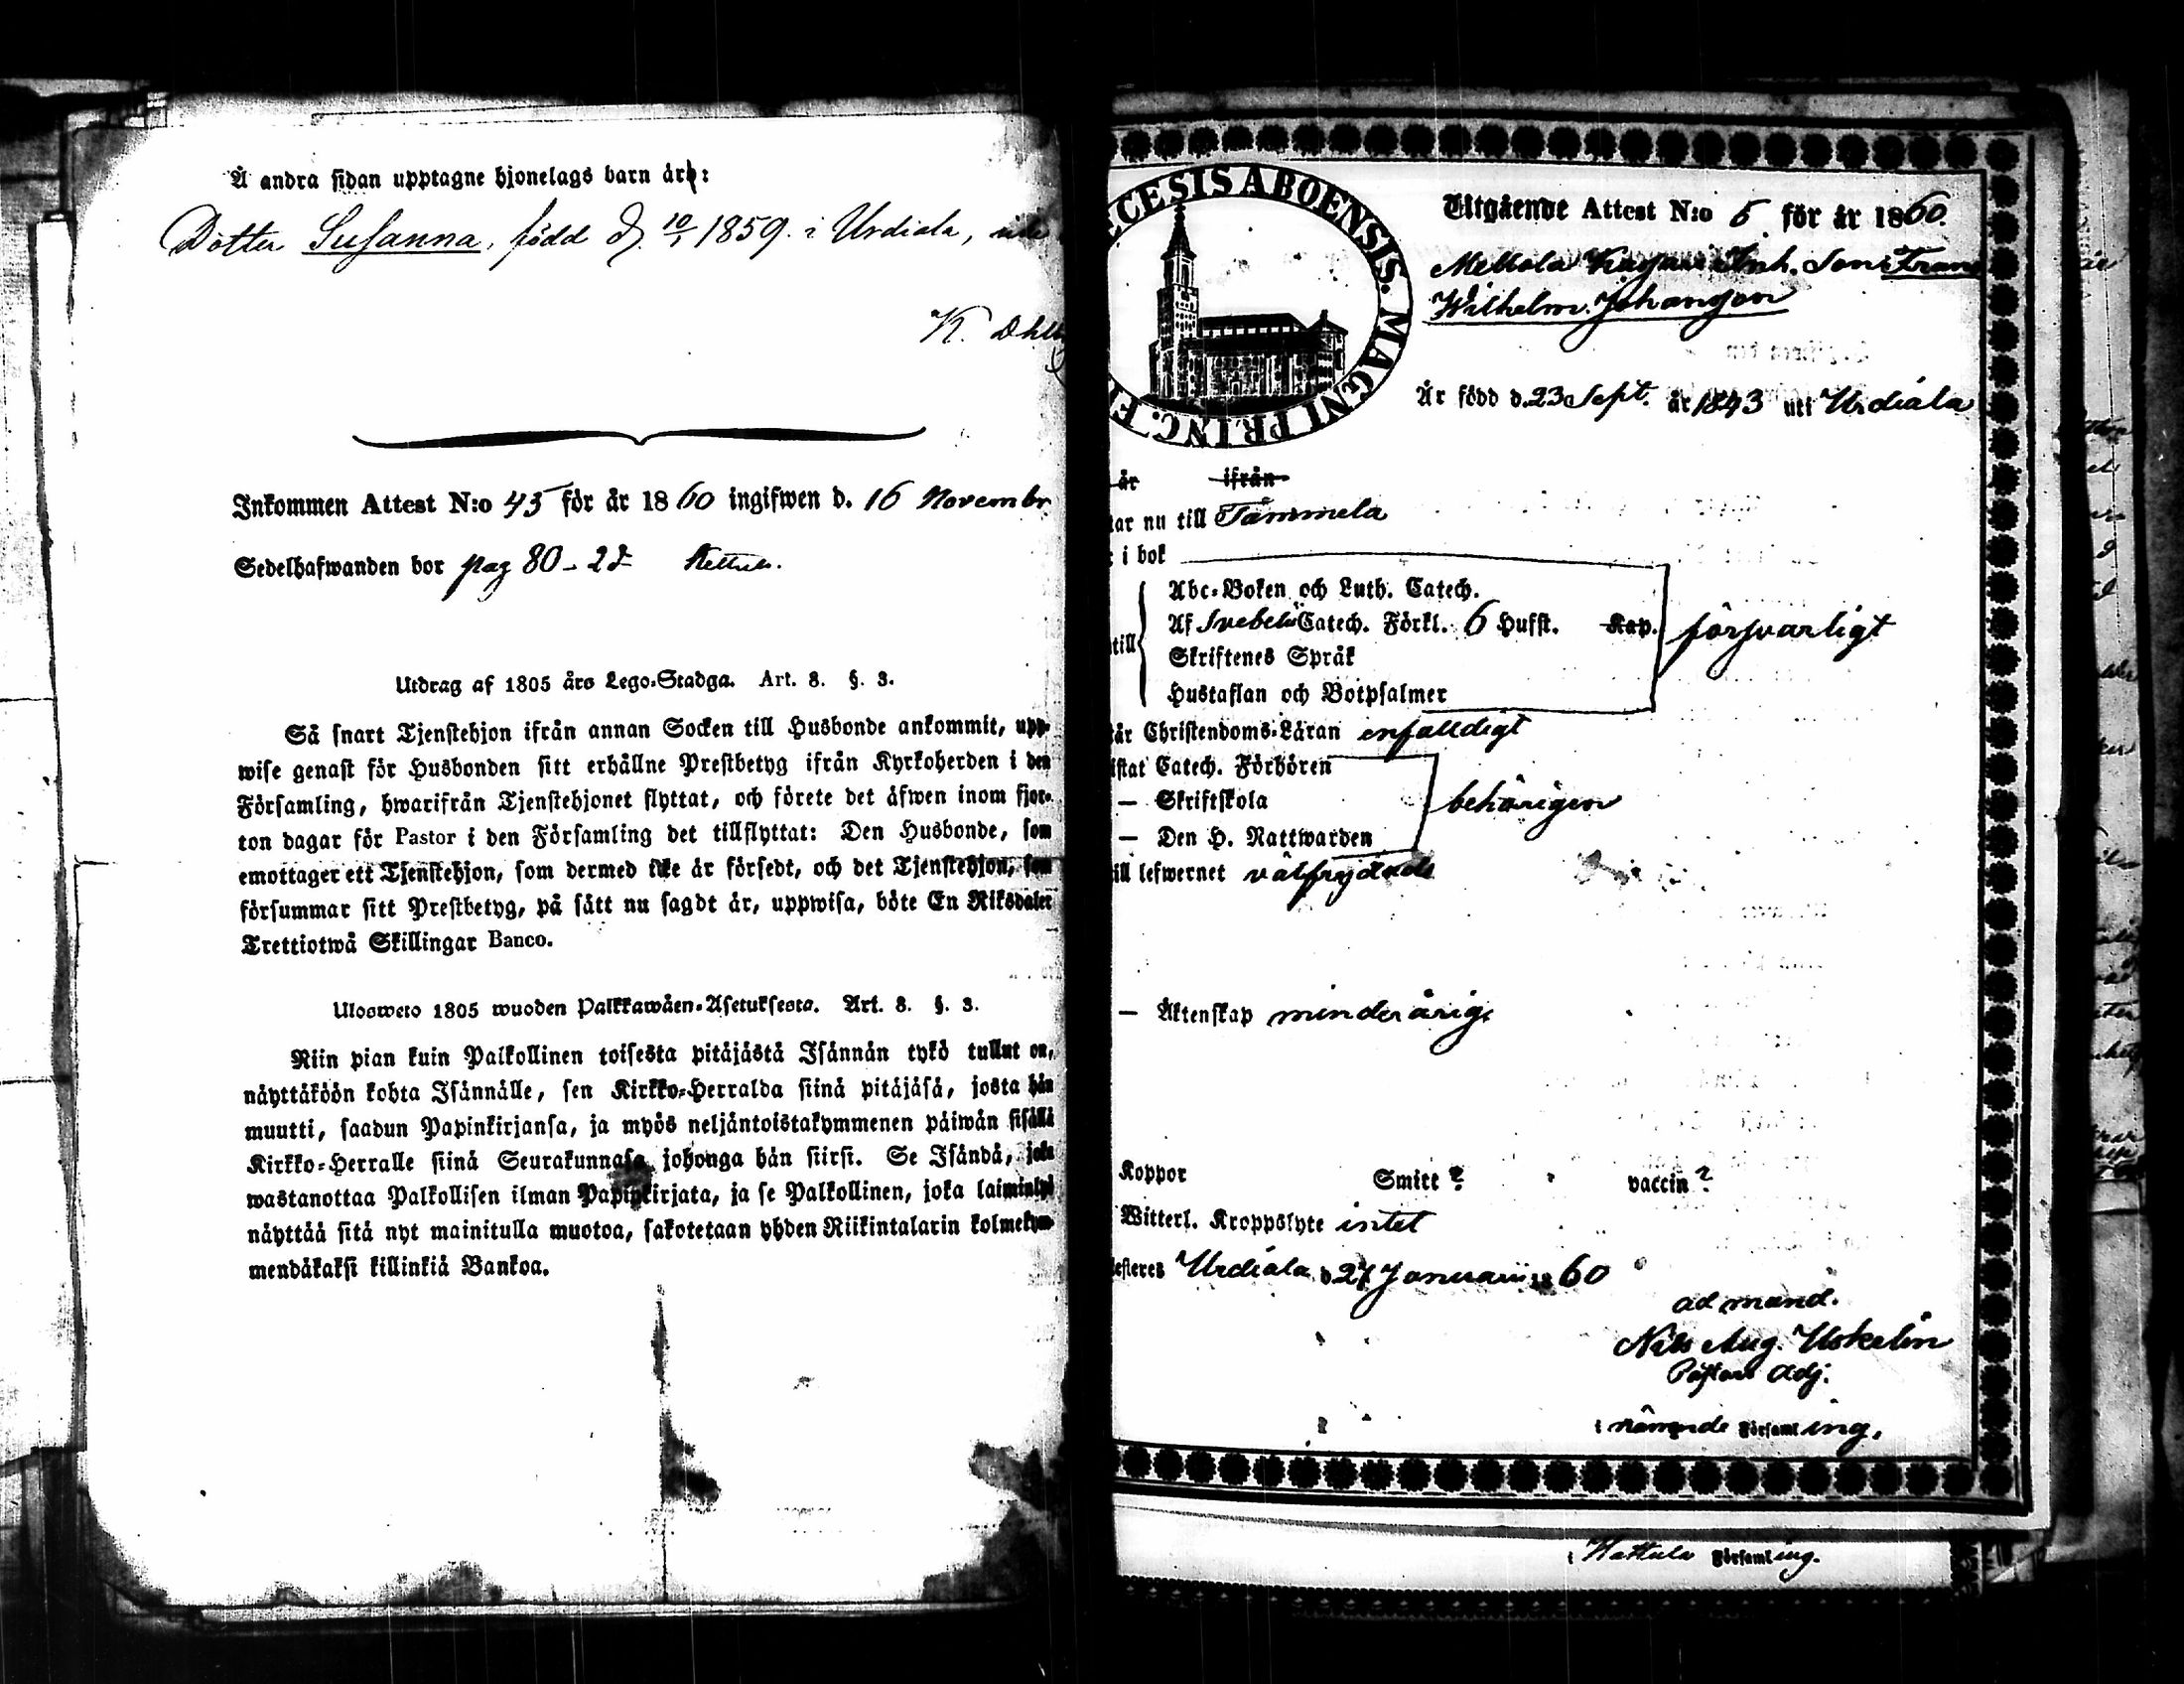 Å andra sidan upptagne hjonelags barn är:
Dotter Susanna, född d. 10/1 1859. i Urdiala,
K.
Inkommen Attest N:o 45 för år 1860 ingifwen d. 16 Novembr
Sedelhafwanden bor pag 80-
Utdrag af 1805 års Lego-Stadga. Art. 8. §. 3.
Så snart Tjenstehjon ifrån annan Socken till Husbonde ankommit, upp-
wise genast för Husbonden sitt erhållne Prestbetyg ifrån Kyrkoherden i den
Församling, hwarifrån Tjenstehjonet flyttat, och förete det äfwen inom fjor-
ton dagar för Pastor i den Församling det tillflyttat: Den Husbonde, som
emottager ett Tjenstehjon, som dermed icke är försedt, och det Tjenstehjon, som
försummar sitt Prestbetyg, på sätt nu sagdt är, uppwisa, böte En Riksdaler
Trettiotwå Skillingar Banco.
Ulosweto 1805 wuoden Palkkawäen-Asetuksesta. Art. 8. §. 3.
Niin pian kuin Palkollinen toisesta pitäjästä Isännän tykö tullut on,
näyttäköön kohta Isännälle, sen Kirkko-Herralda siinä pitäjäsä, josta hän
muutti, saadun Papinkirjansa, ja myös neljäntoistakymmenen päiwän sisällä
Kirkko-Herralle siinä Seurakunnasa, johonga hän siirsi. Se Isändä, joka
wastanottaa Palkollisen ilman Papinkirjata, ja se Palkollinen, joka laiminlyö
näyttää sitä nyt mainitulla muotoa, sakotetaan yhden Riikintalarin kolmekym-
mendäkaksi killinkiä Bankoa.
CESIS ABOENSIS. MAGNI PRINC. FI
Utgående Attest N:o 5 för år 1860.
Mellola Inh. Son Frans
Wilhelm Johansson
Är född d. 23 Sept. år 1843 uti Urdiala
är ifrån
ar nu till Tammela
i bok
till
Abc-Boken och Luth. Catech.
Af Svebelii Catech. Förkl. 6 Hufst. Kap. försvarligt
Skriftenes Språk
Hustaflan och Botpsalmer
är Christendoms-Läran enfalldigt
istat Catech. Förhören
— Skriftskola behörigen
— Den H. Nattwarden
ill lefwernet välfrejdade
— Äktenskap minderårig
Koppor Smitt? vaccin?
Witterl. Kroppslyte intet
esteres Urdiala d. 27 Januarii 1860
ad mand.
Nils Aug. Uskelin
Pastors Adj.
i nämnde Församling.
i Hattula Församling.